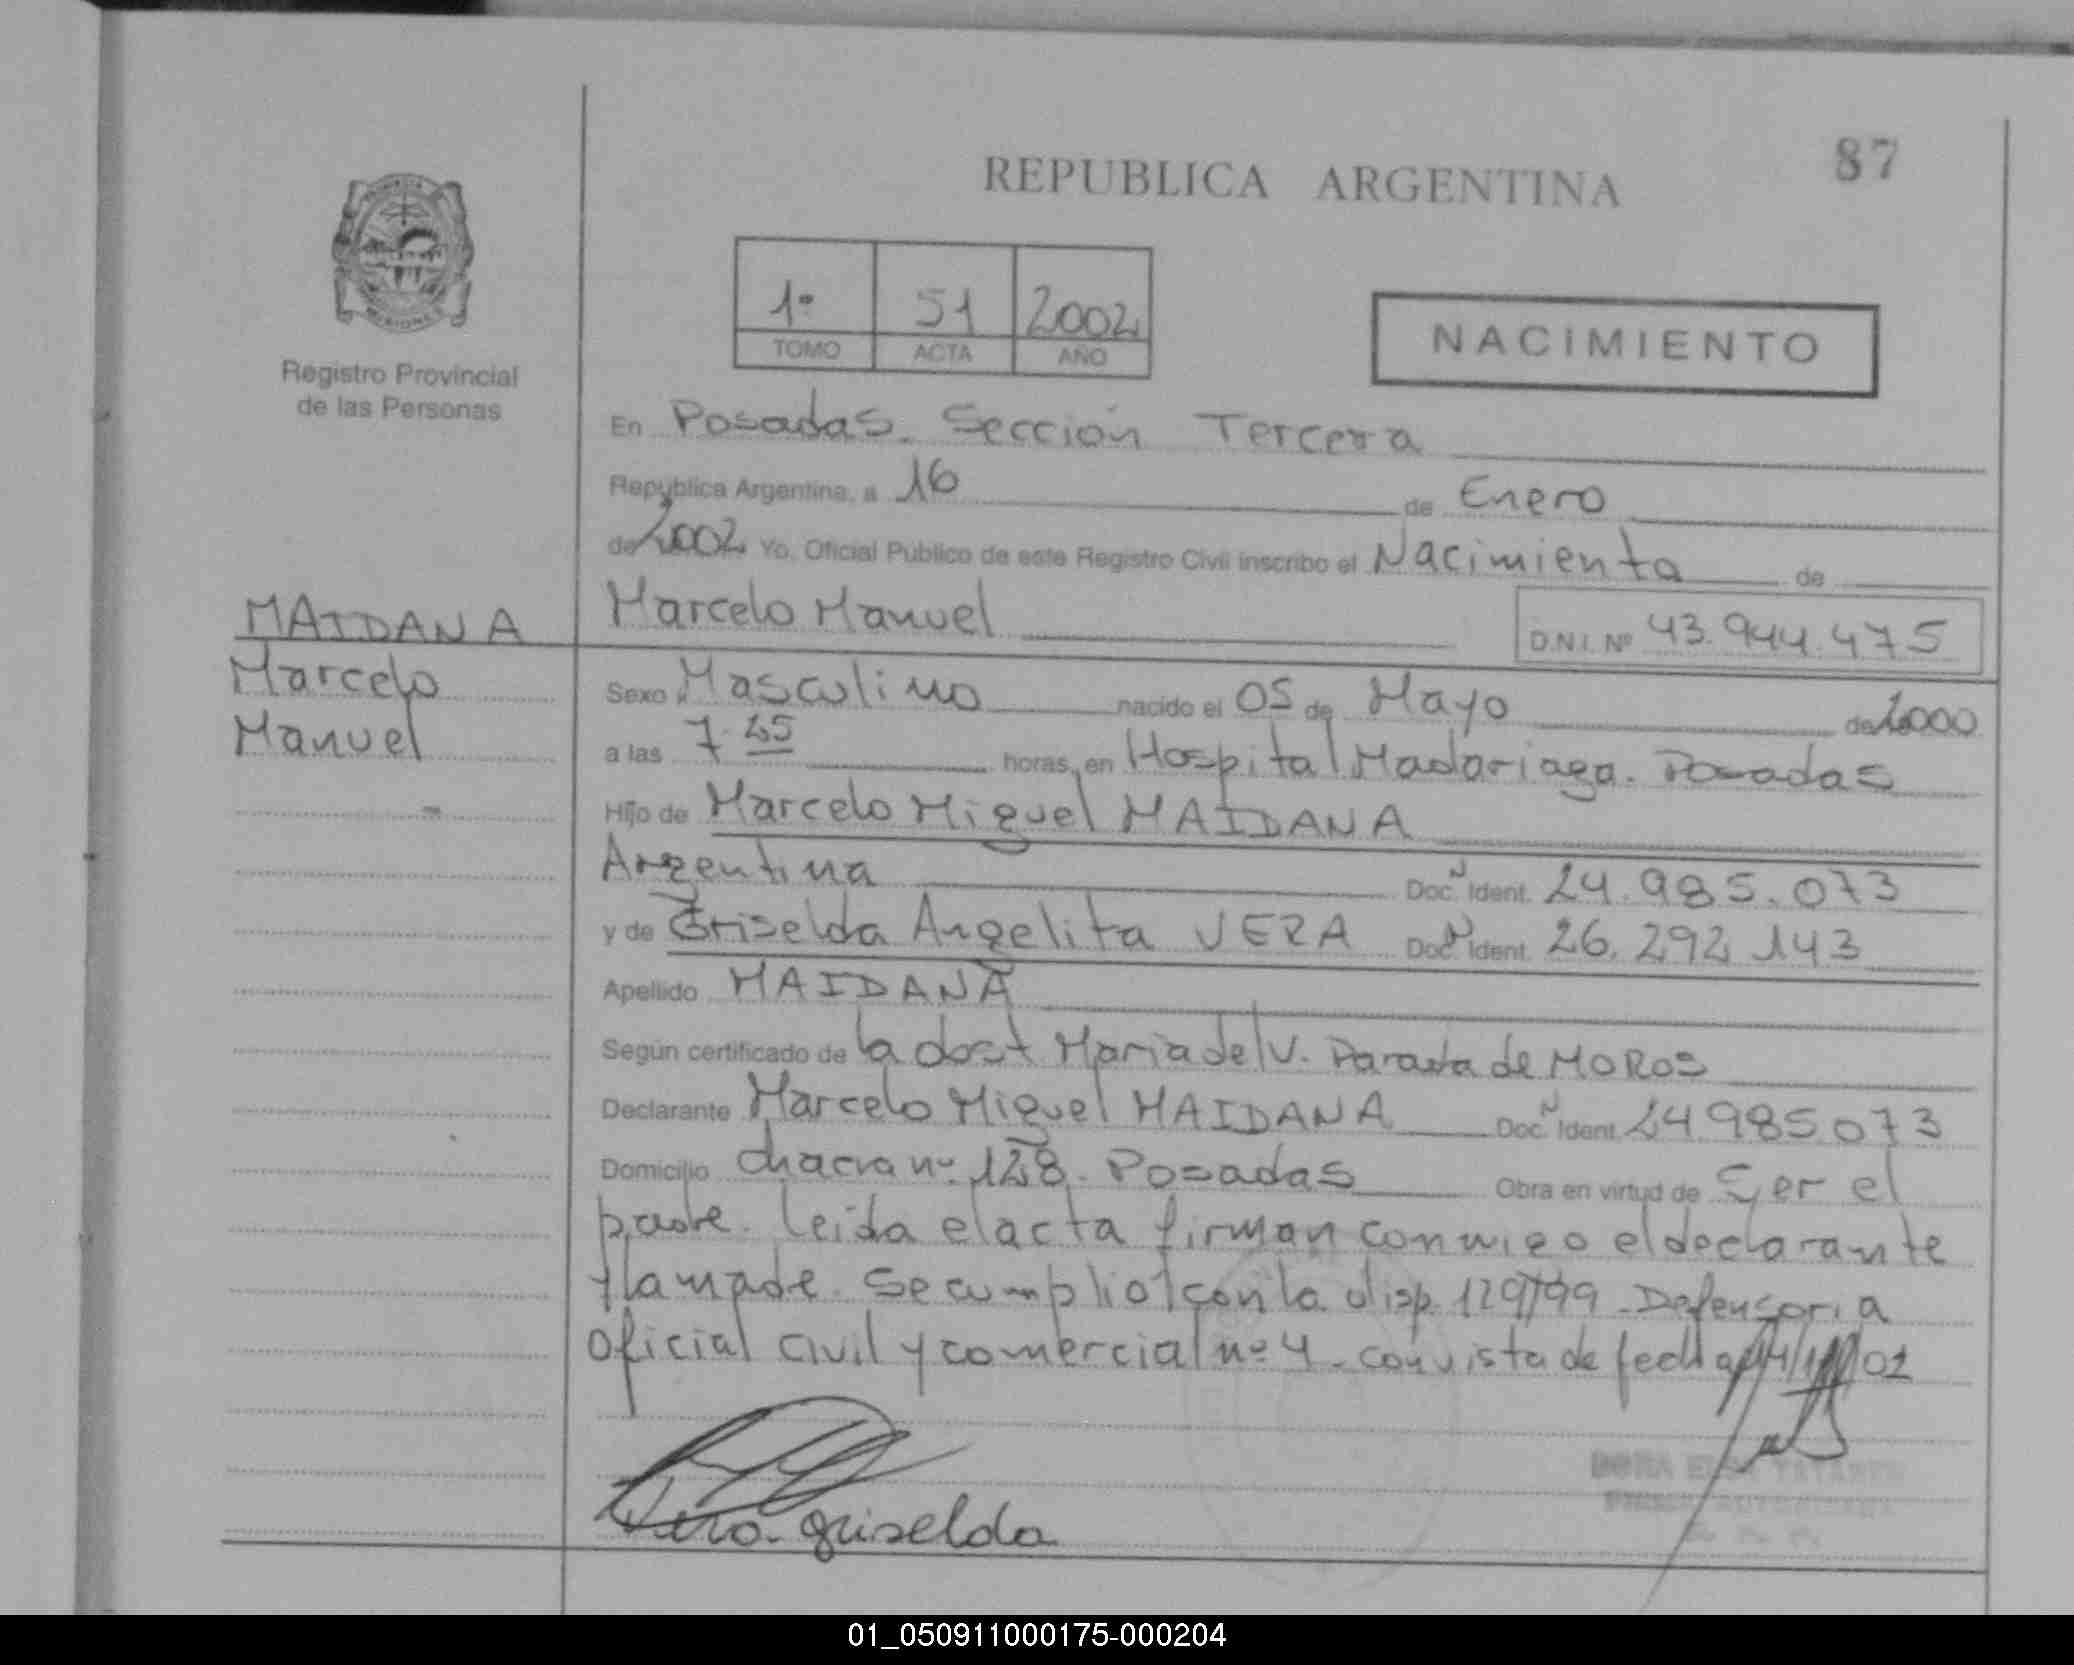 87
REPUBLICA ARGENTINA
1º 51 2002
TOMO ACTA AÑO
NACIMIENTO
MISIONES
Registro Provincial
de las Personas
En Posadas. Sección Tercera
República Argentina, a 16 de Enero
de 2002 Yo, Oficial Público de este Registro Civil inscribo el Nacimiento de
MAIDANA
Marcelo
Manuel
Marcelo Manuel D.N.I. Nº 43.944.475
Sexo Masculino nacido el 05 de Mayo de 2000
a las 7. horas, en Hospital Madariaga. Posadas
Hijo de Marcelo Miguel MAIDANA
Argentina Doc. N Ident. 24.985.073
y de Griselda Angelita VERA Doc. N Ident. 26.292.143
Apellido MAIDANA
Según certificado de la doct María del V. de MOROS
Declarante Marcelo Miguel MAIDANA Doc. N Ident. 24985073
Domicilio chacra nº 128. Posadas Obra en virtud de Ser el
padre. leida el acta firman conmigo el declarante
y la madre. Se cumplio con la disp. 129/99. Defensoria
Oficial Civil y comercial nº 4. con vista de fecha
Vera griselda
01_050911000175-000204